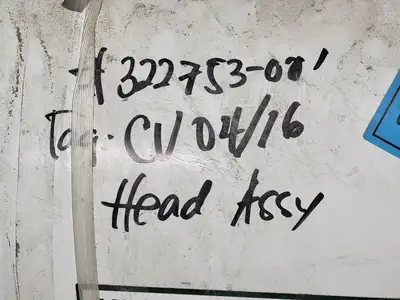 # 322753-001
Tag: CV04/16
Head Assy